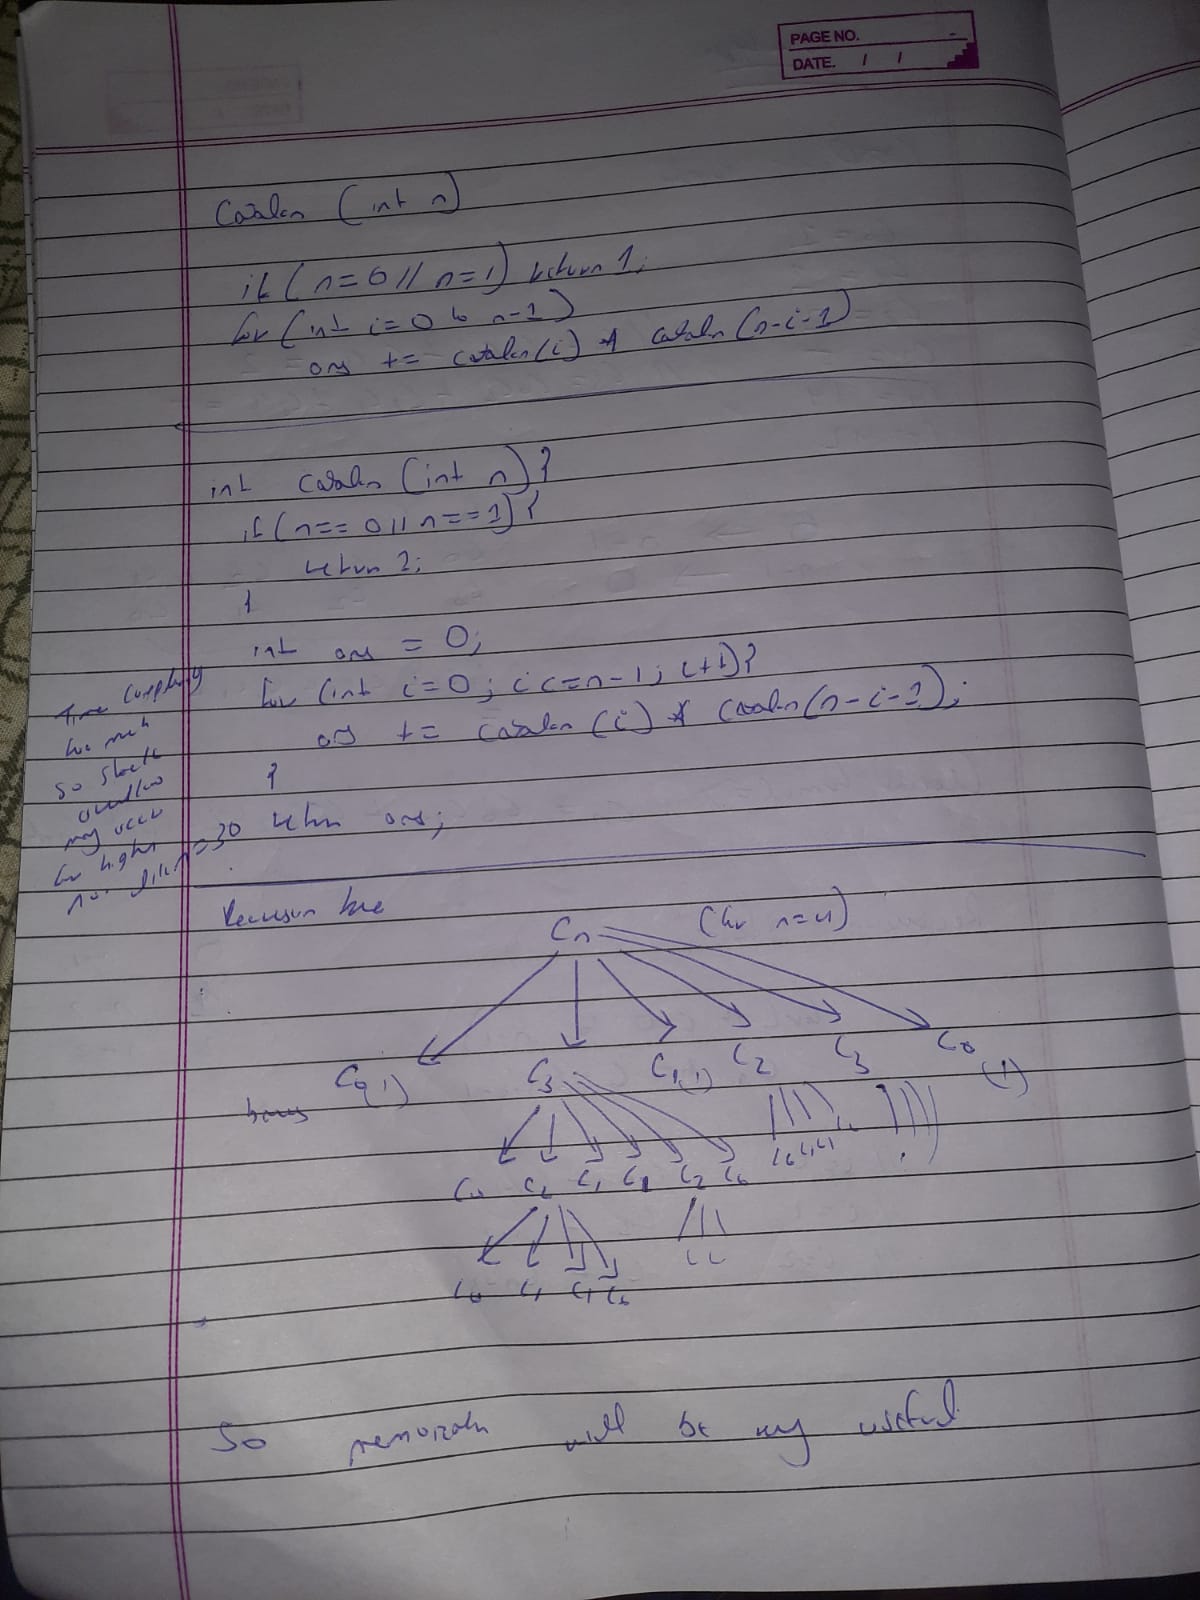 PAGE NO.
DATE. / /
Catalan (int n)
if (n=0 || n=1) return 1;
for (int i=0 to n-1)
ans += catalan(i) * catalan(n-i-1)
int catalan (int n) {
if (n==0 || n==1) {
return 1;
}
int ans = 0;
for (int i=0; i<=n-1; i++) {
ans += catalan (i) * catalan(n-i-1);
}
return ans;
Time complexity
too much
so stack
overflow
may occur
for higher
no. like n=30
Recursion tree
Cn (for n=4)
C0(1) C3 C1(1) C2 C3 C0 (1)
C0 C2 C1 C1 C2 C0
C0 C1 C1 C0
So memoizatn will be very useful